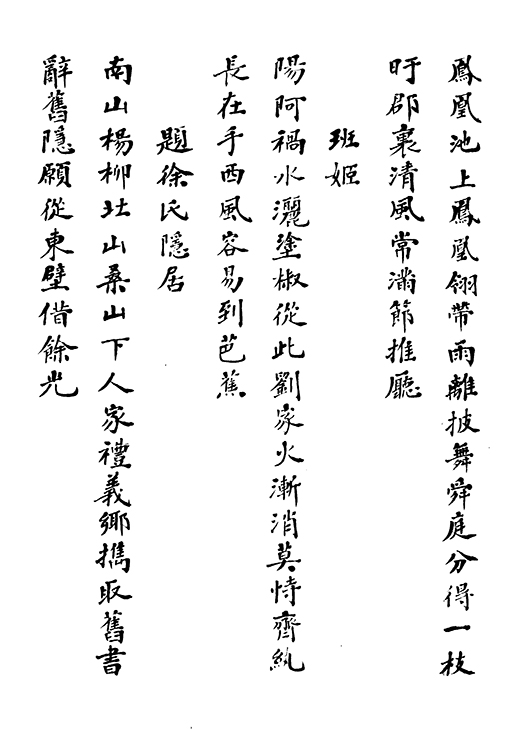 鳳凰池上鳳凰翎帶雨離披舞舜庭分得一枝
盱郡裏清風常滿節推廳
班姬
陽阿禍水灑塗椒從此劉家火漸消莫恃齊紈
長在手西風容易到芭蕉
題徐氏隱居
南山楊柳北山桑山下人家禮義鄉擕取舊書
辭舊隱願從東壁借餘光